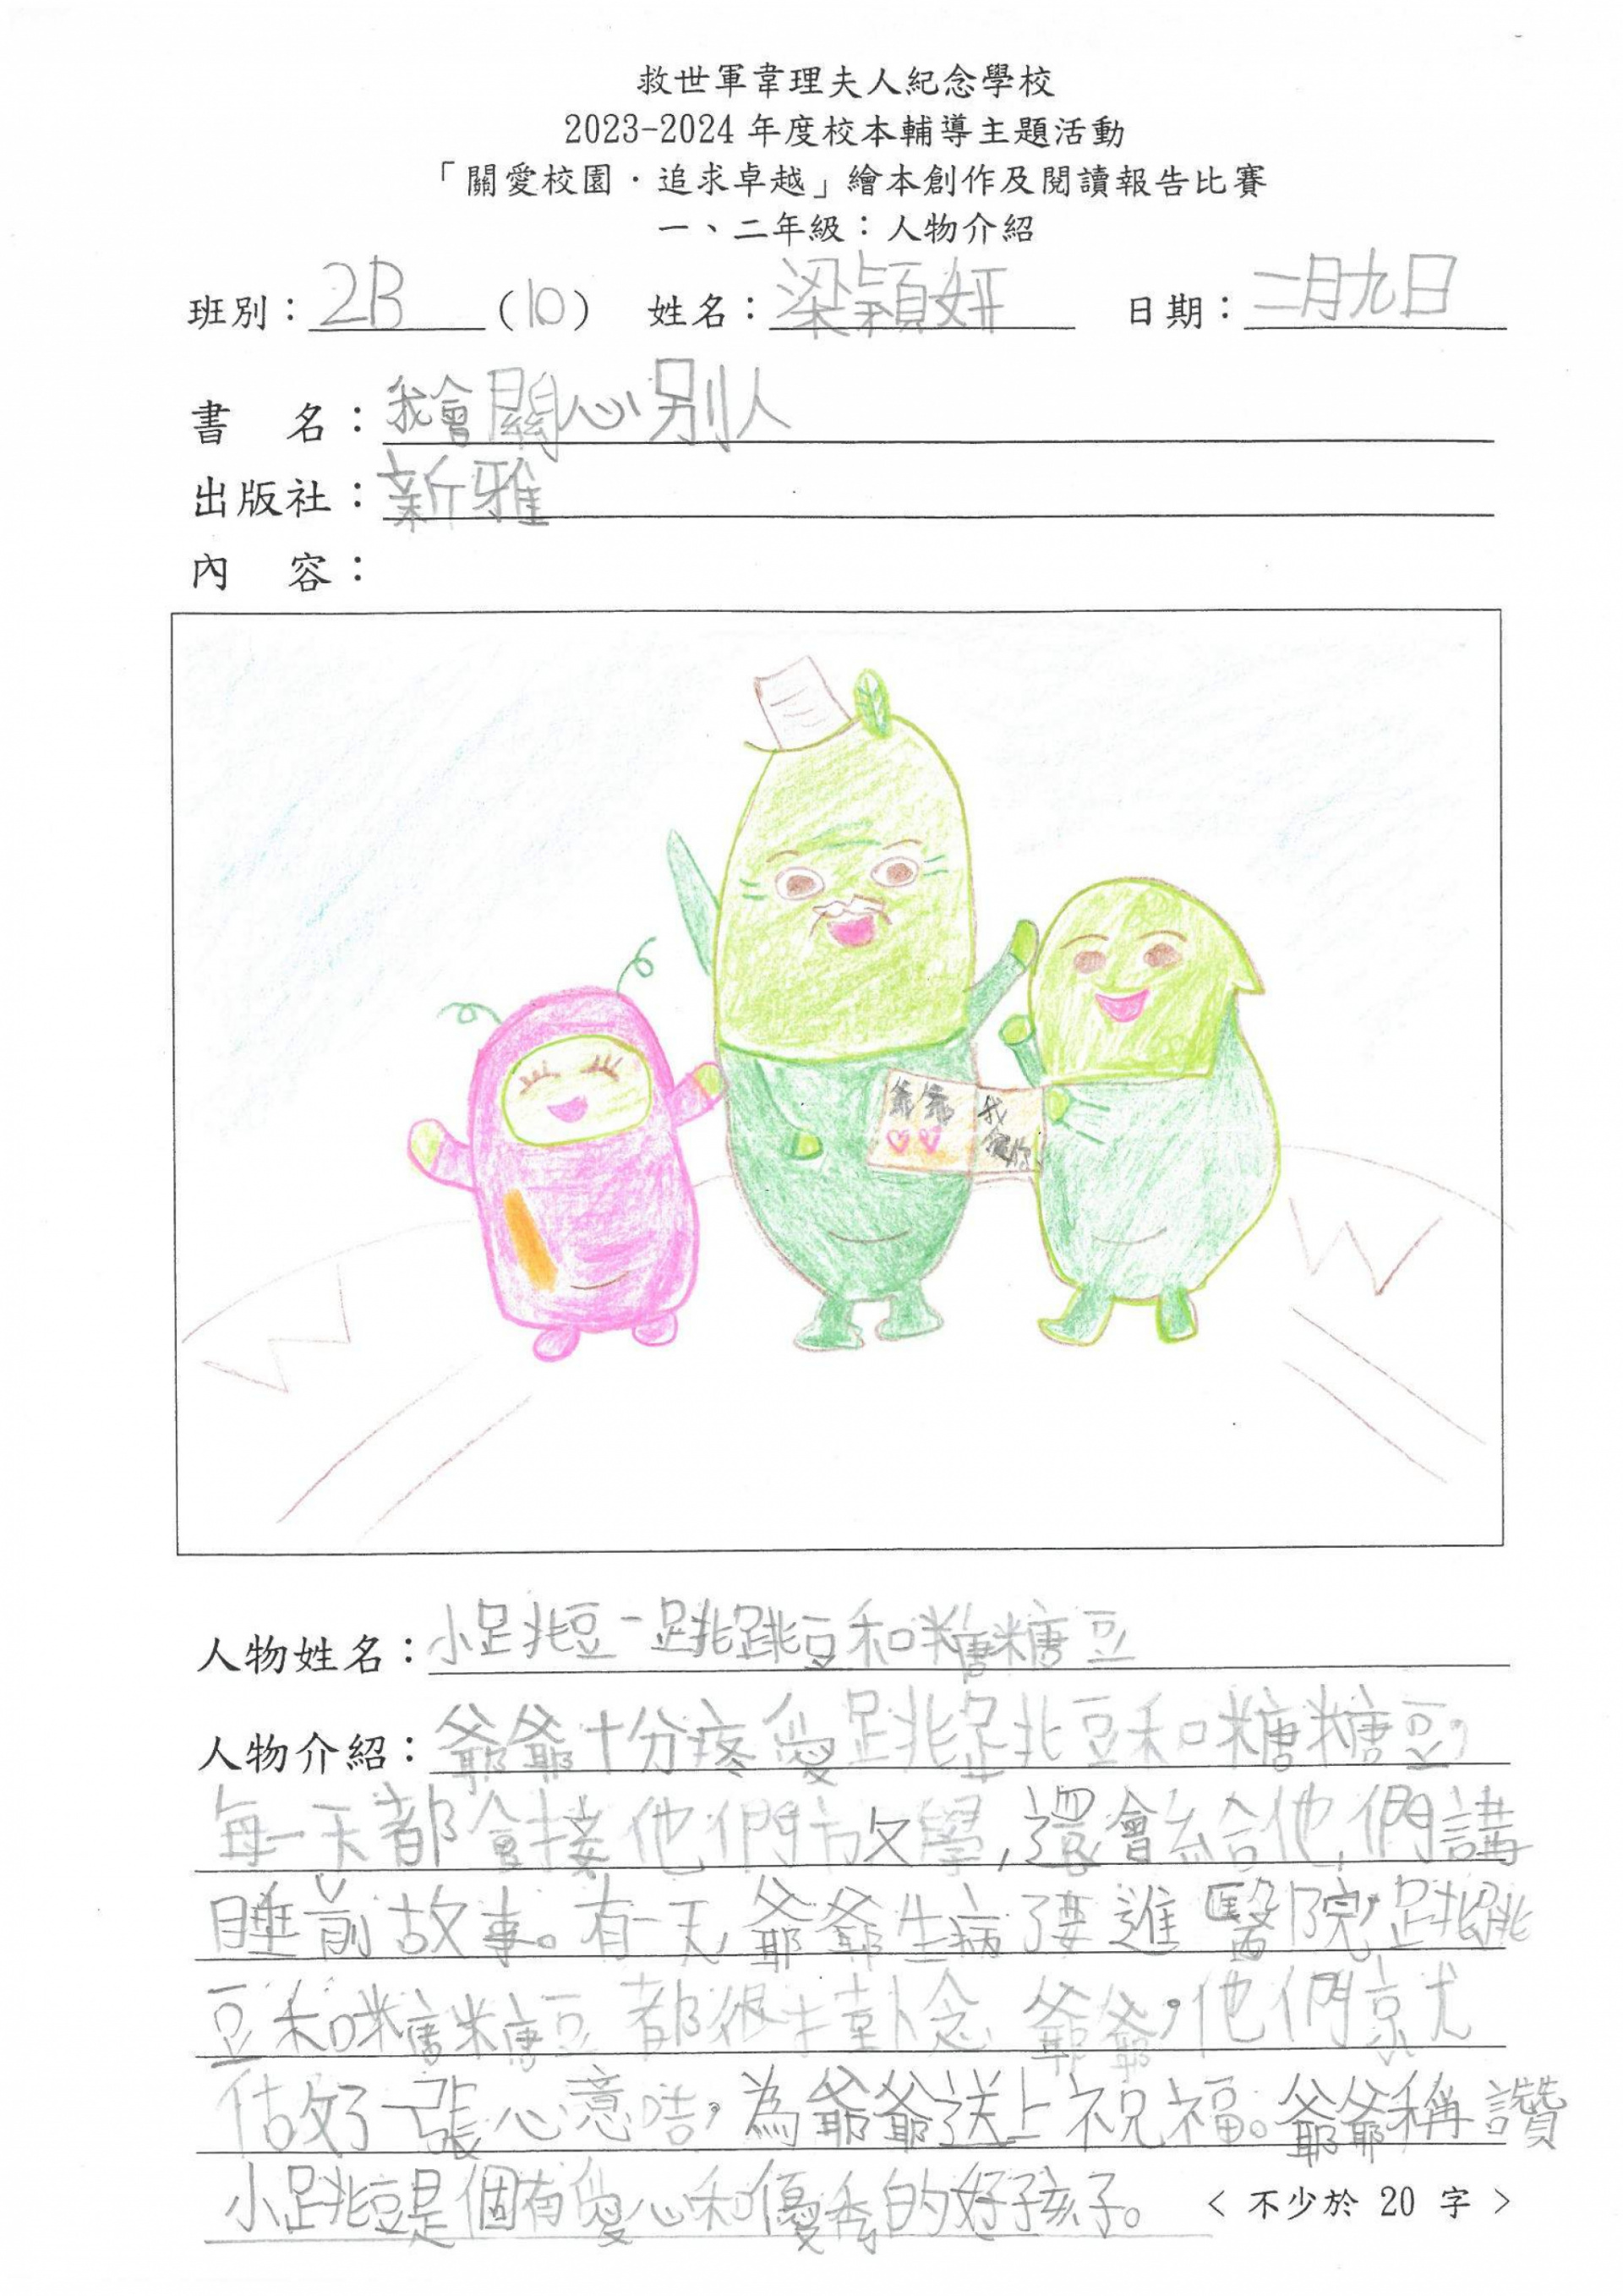 救世軍韋理夫人紀念學校
2023-2024 年度校本輔導主題活動
「關愛校園・追求卓越」繪本創作及閱讀報告比賽
一、二年級：人物介紹
班別：2B (10) 姓名：梁穎妍 日期：二月九日
書 名：我會關心別人
出版社：新雅
內 容：
爺爺 我
愛你
人物姓名：小跳豆-跳跳豆和糖糖豆
人物介紹：爺爺十分疼愛跳跳豆和糖糖豆，
每一天都會接他們放學，還會給他們講
睡前故事。有一天爺爺生病了要進醫院，跳跳
豆和糖糖豆都很掛念爺爺，他們就
做了一張心意咭，為爺爺送上祝福。爺爺稱讚
小跳豆是個有愛心和優秀的好孩子。
＜不少於 20 字＞